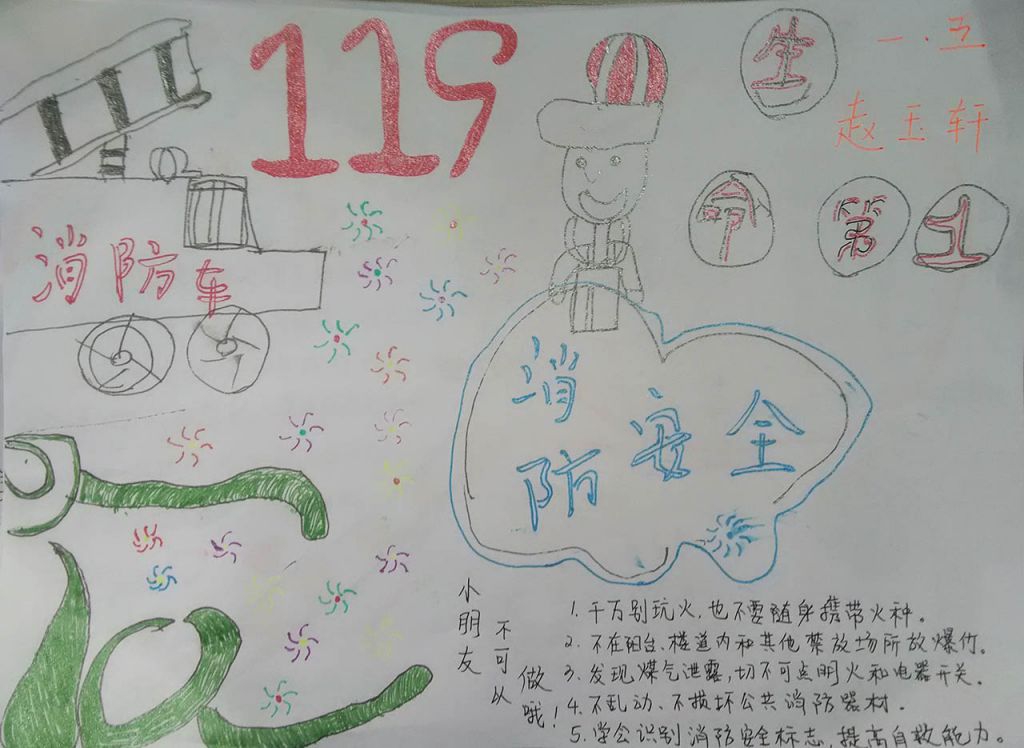 119
生命第1
一.五
赵玉轩
消防车
消防安全
小朋友
不可以
做哦!
1. 千万别玩火,也不要随身携带火种。
2. 不在阳台、楼道内和其他禁放场所放爆竹。
3. 发现煤气泄露,切不可点明火和电器开关。
4. 不乱动、不损坏公共消防器材.
5. 学会识别消防安全标志,提高自救能力。